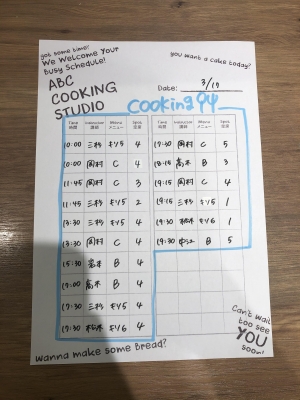 got some time?
We Welcome Your
Busy Schedule!
ABC
COOKING
STUDIO
you want a cake today?
Date: 3/17
Cooking
Time Instructor Menu Spot
時間 講師 メニュー 空席
10:00 三杉 キソ5 4
10:00 岡村 C 4
11:45 岡村 C 3
11:45 三杉 キソ5 2
13:30 三杉 キソ5 4
13:30 岡村 C 4
15:30 B 4
17:00 高木 B 4
17:30 三杉 キソ5 4
17:30 キソ6 4
Time Instructor Menu Spot
時間 講師 メニュー 空席
17:30 岡村 C 5
18:15 高木 B 3
19:15 岡村 C 4
19:15 三杉 キソ5 1
19:30 キソ6 1
19:30 B 5
Can't wait
too see
YOU
soon!
wanna make some Bread?